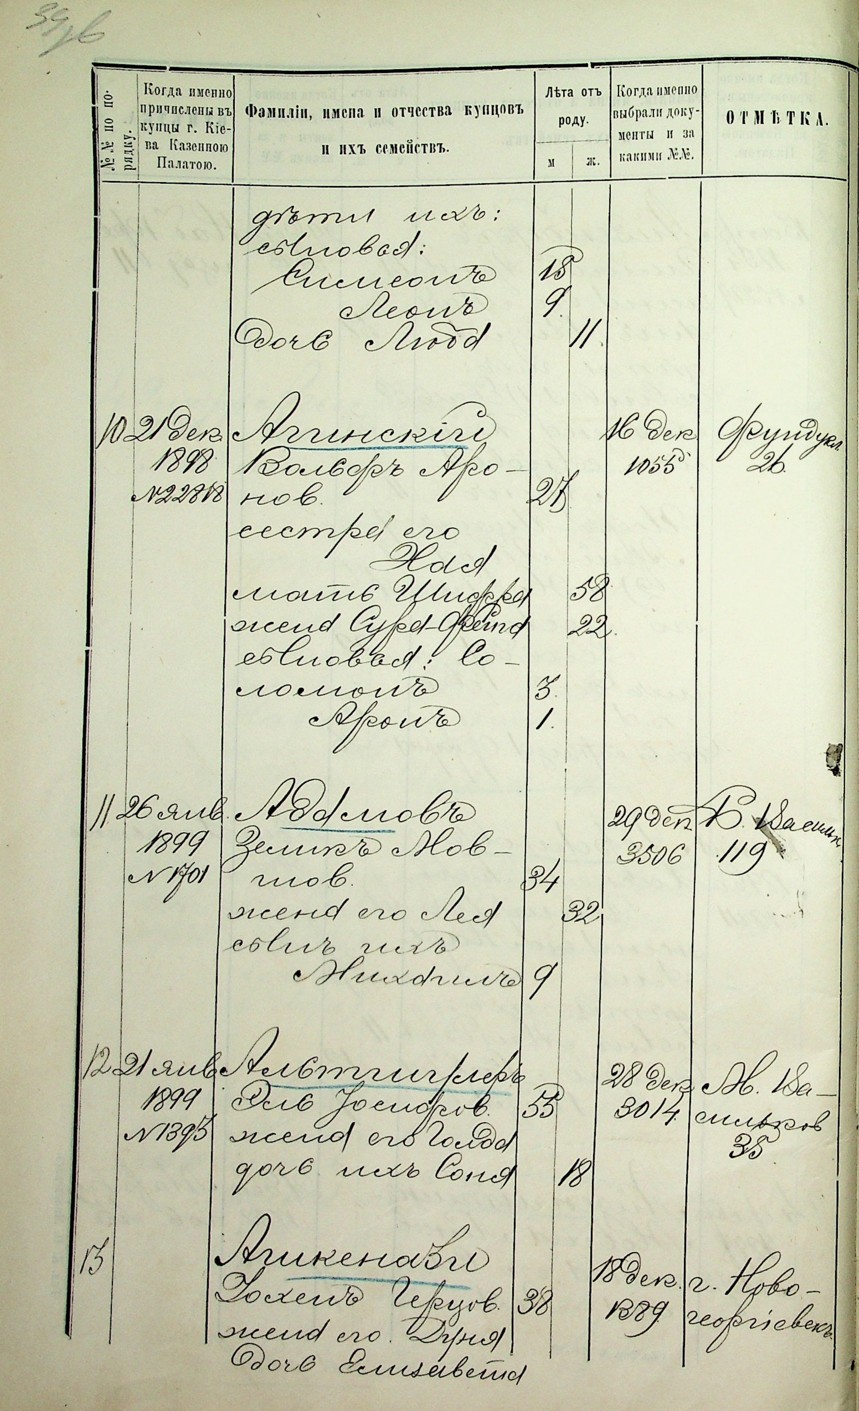 №№ по порядку.
Когда именно причислены въ купцы г. Кіева Казенною Палатою.
Фамиліи, имена и отчества купцовъ и ихъ семействъ.
Лѣта отъ роду.
м
ж.
Когда именно выбрали документы и за какими №№.
ОТМѢТКА.
дѣти ихъ:
сыновья:
Симеонъ 15
Леонъ 9.
Дочь Люба 11.
10 21 Дек. Агинскій 16 Дек. Фундукл.
1898 Вольфъ Аро- 1055 26
№22818 нов. 27
сестра его
Хая
мать Шифра 58
жена Сура-Фейга 22.
сыновья: Со-
ломонъ 3.
Аронъ 1.
11 26 янв. Адамовъ 29 Дек. Б. Васильк.
1899 Зеликъ Мов- 3506 119
№1701 шов. 34
жена его Лея 32
сынъ ихъ
Михаилъ 9
12 21 янв. Альтшулеръ 28 Дек. М. Ва-
1899 Эль Іосифов. 55 3014 сильков
№1395 жена его Голда 35
дочь ихъ Соня 18
13 Ашкенази 18 Дек. г. Ново-
Іохель Герцов. 38 1389 георгіевскъ.
жена его Дуня
Дочь Елисавета